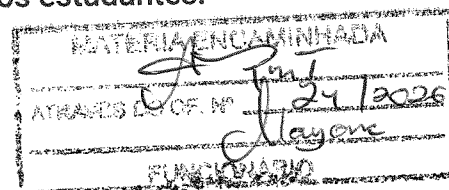 os estudantes.
MATERIA ENCAMINHADA
ATRAVÉS DO OF. Nº 24/2026
FUNCIONÁRIO